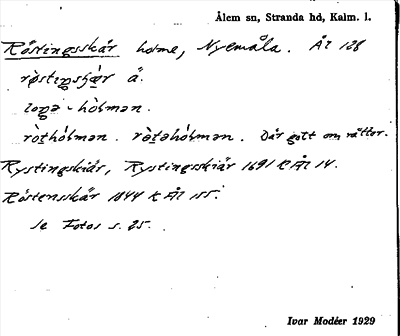 Ålem sn, Stranda hd, Kalm. l.
Röstingsskär holme, Nyemåla. Ål 128
røstiŋsʃæ̀r å.
loŋə - hòlmən.
ròthólmən. rø̀təhólmən. Där gott om råttor.
Rystingskiär, Rystingsskiär 1691 k Ål 14.
Röstensskär 1844 k Ål 155.
Se Fotos s. 25.
Ivar Modéer 1929